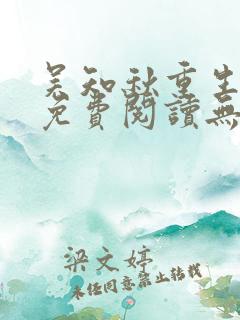 吴知秋重生
免費閱讀無
梁文婷
未經同意禁止轉載